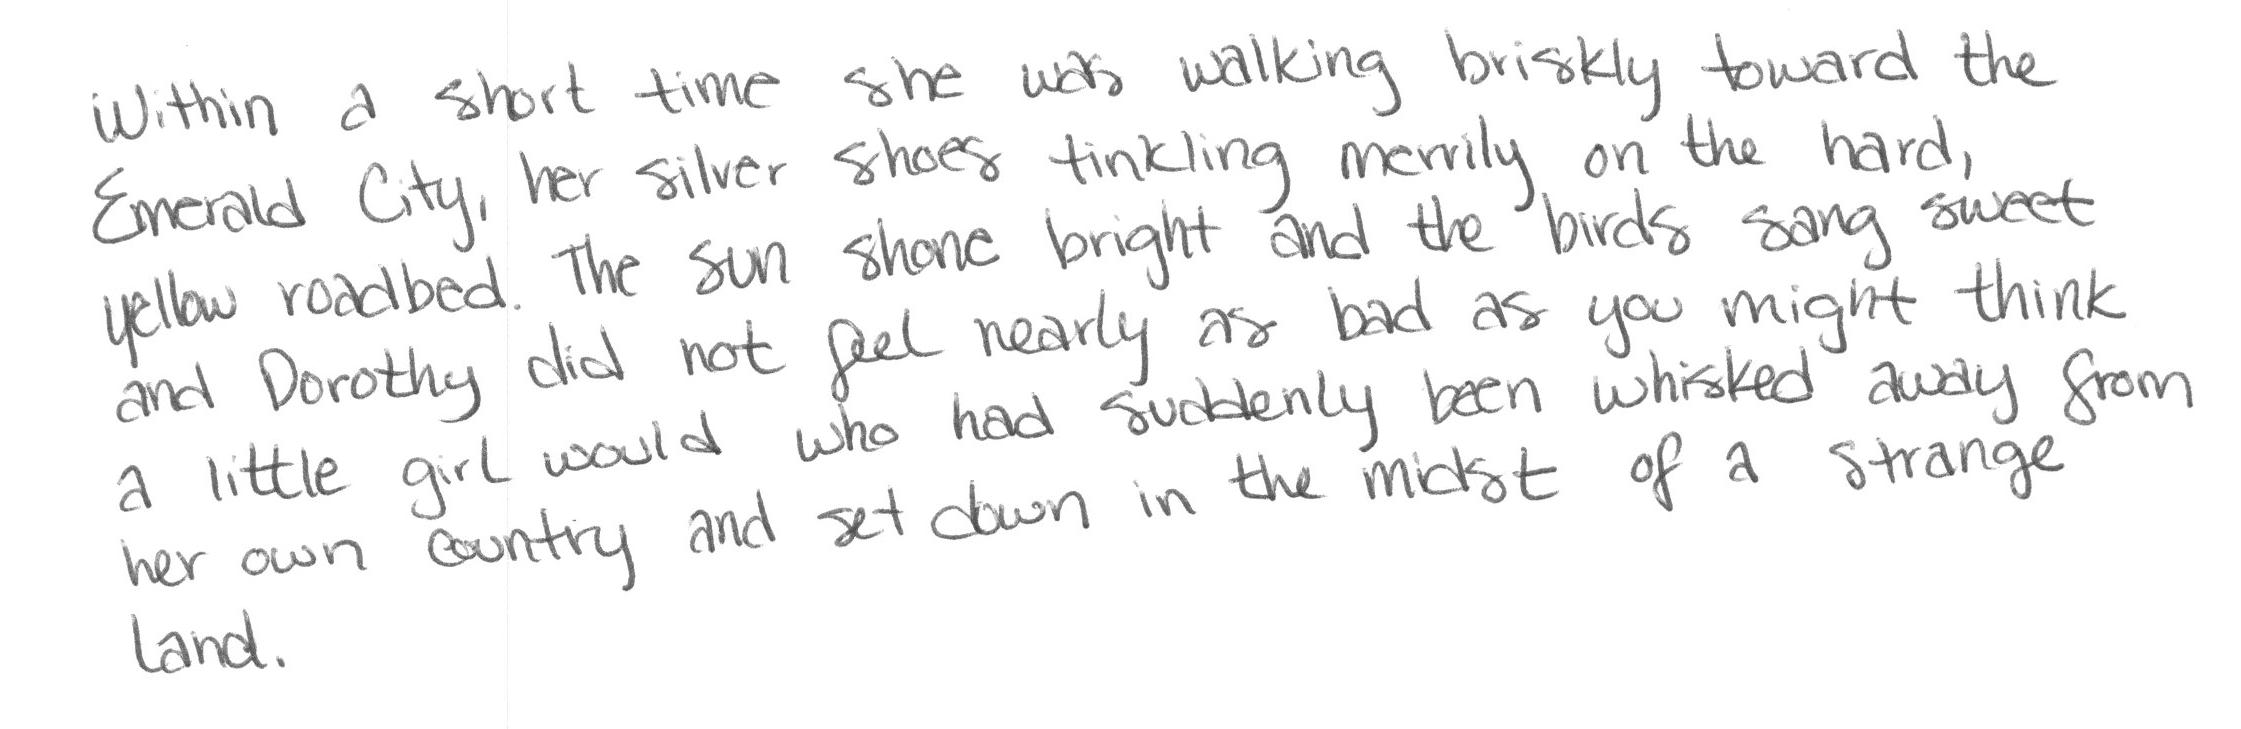 Within a short time she was walking briskly toward the
Emerald City, her silver shoes tinkling merrily on the hard,
yellow roadbed. The sun shone bright and the birds sang sweet
and Dorothy did not feel nearly as bad as you might think
a little girl would who had suddenly been whisked away from
her own country and set down in the midst of a strange
land.